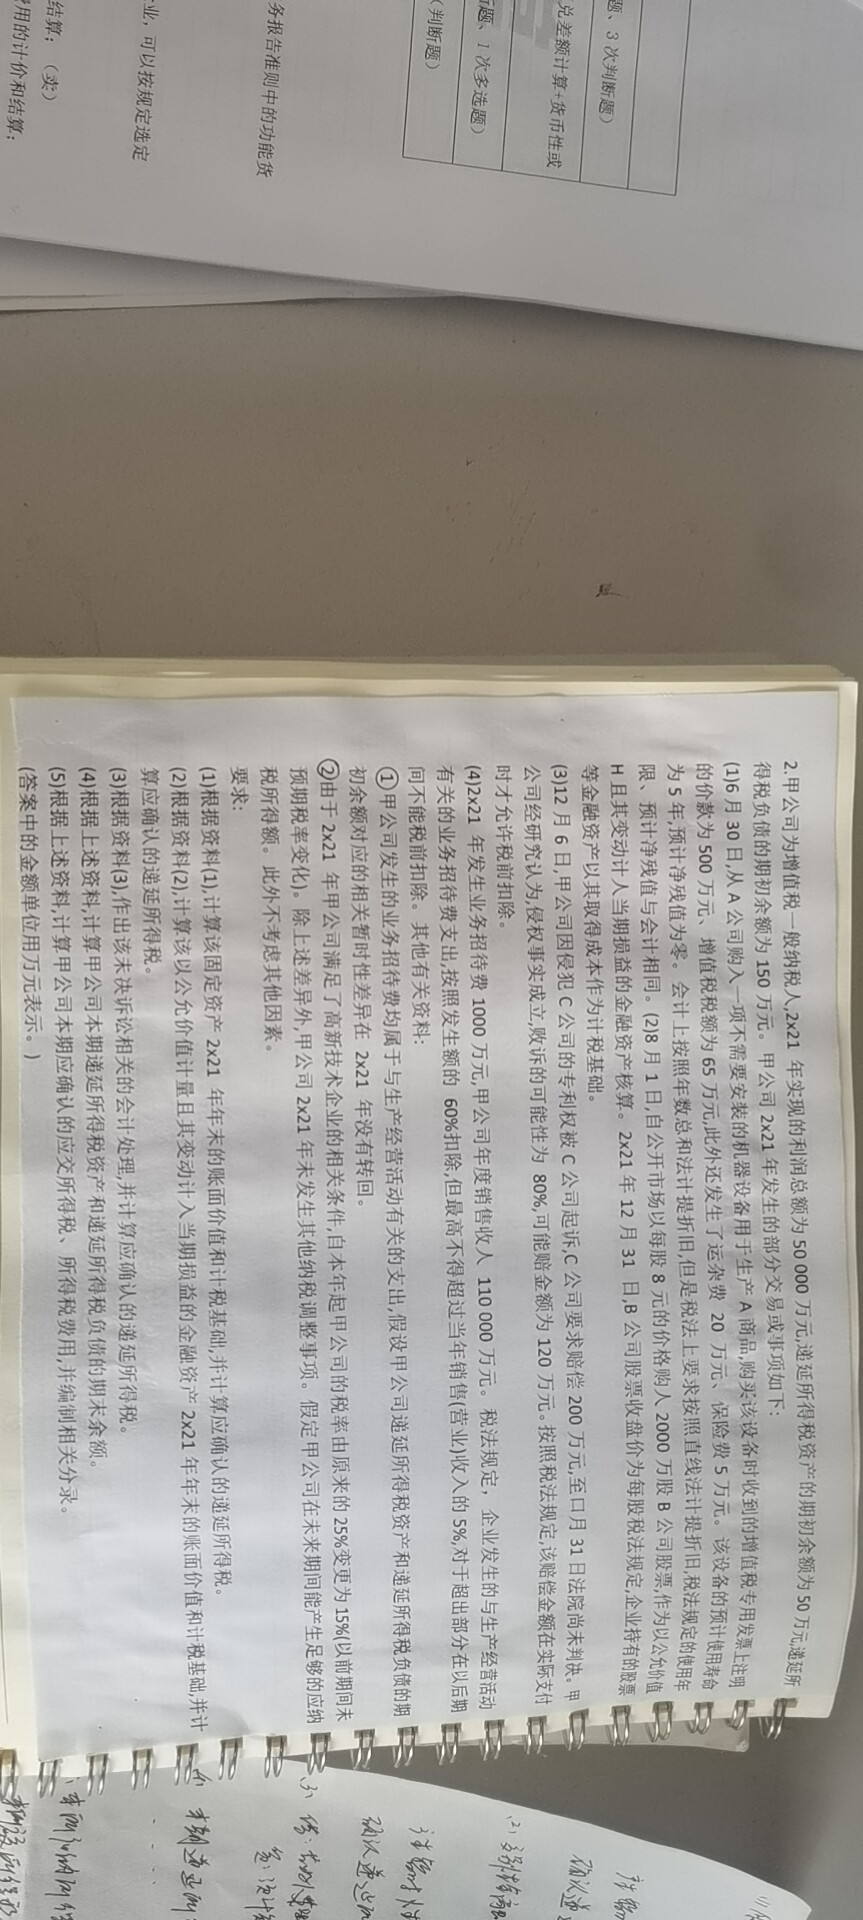 题、3 次判断题）
兑差额计算+货币性或
题、1 次多选题）
（判断题）
务报告准则中的功能货
业，可以按规定选定
结算；（卖）
用的计价和结算；
2.甲公司为增值税一般纳税人,2x21 年实现的利润总额为 50 000 万元,递延所得税资产的期初余额为 50 万元,递延所
得税负债的期初余额为 150 万元。甲公司 2x21 年发生的部分交易或事项如下:
(1)6 月 30 日,从 A 公司购入一项不需要安装的机器设备用于生产 A 商品,购买该设备时收到的增值税专用发票上注明
的价款为 500 万元、增值税税额为 65 万元,此外还发生了运杂费 20 万元、保险费 5 万元。该设备的预计使用寿命
为 5 年,预计净残值为零。会计上按照年数总和法计提折旧,但是税法上要求按照直线法计提折旧,税法规定的使用年
限、预计净残值与会计相同。(2)8 月 1 日,自公开市场以每股 8 元的价格购人 2000 万股 B 公司股票,作为以公允价值
H 且其变动计人当期损益的金融资产核算。2x21 年 12 月 31 日,B 公司股票收盘价为每股税法规定,企业持有的股票
等金融资产以其取得成本作为计税基础。
(3)12 月 6 日,甲公司因侵犯 C 公司的专利权被 C 公司起诉,C 公司要求赔偿 200 万元,至口月 31 日法院尚未判决。甲
公司经研究认为,侵权事实成立,败诉的可能性为 80%,可能赔金额为 120 万元。按照税法规定,该赔偿金额在实际支付
时才允许税前扣除。
(4)2x21 年发生业务招待费 1000 万元,甲公司年度销售收人 110 000 万元。税法规定，企业发生的与生产经营活动
有关的业务招待费支出,按照发生额的 60%扣除,但最高不得超过当年销售(营业)收入的 5%,对于超出部分在以后期
间不能税前扣除。其他有关资料:
①甲公司发生的业务招待费均属于与生产经营活动有关的支出,假设甲公司递延所得税资产和递延所得税负债的期
初余额对应的相关暂时性差异在 2x21 年没有转回。
②由于 2x21 年甲公司满足了高新技术企业的相关条件,自本年起甲公司的税率由原来的 25%变更为 15%(以前期间未
预期税率变化)。除上述差异外,甲公司 2x21 年未发生其他纳税调整事项。假定甲公司在未来期间能产生足够的应纳
税所得额。此外不考虑其他因素。
要求:
(1)根据资料(1),计算该固定资产 2x21 年年末的账面价值和计税基础,并计算应确认的递延所得税。
(2)根据资料(2),计算该以公允价值计量且其变动计入当期损益的金融资产 2x21 年年末的账面价值和计税基础,并计
算应确认的递延所得税。
(3)根据资料(3),作出该未决诉讼相关的会计处理,并计算应确认的递延所得税。
(4)根据上述资料,计算甲公司本期递延所得税资产和递延所得税负债的期末余额。
(5)根据上述资料,计算甲公司本期应确认的应交所得税、所得税费用,并编制相关分录。
(答案中的金额单位用万元表示。)